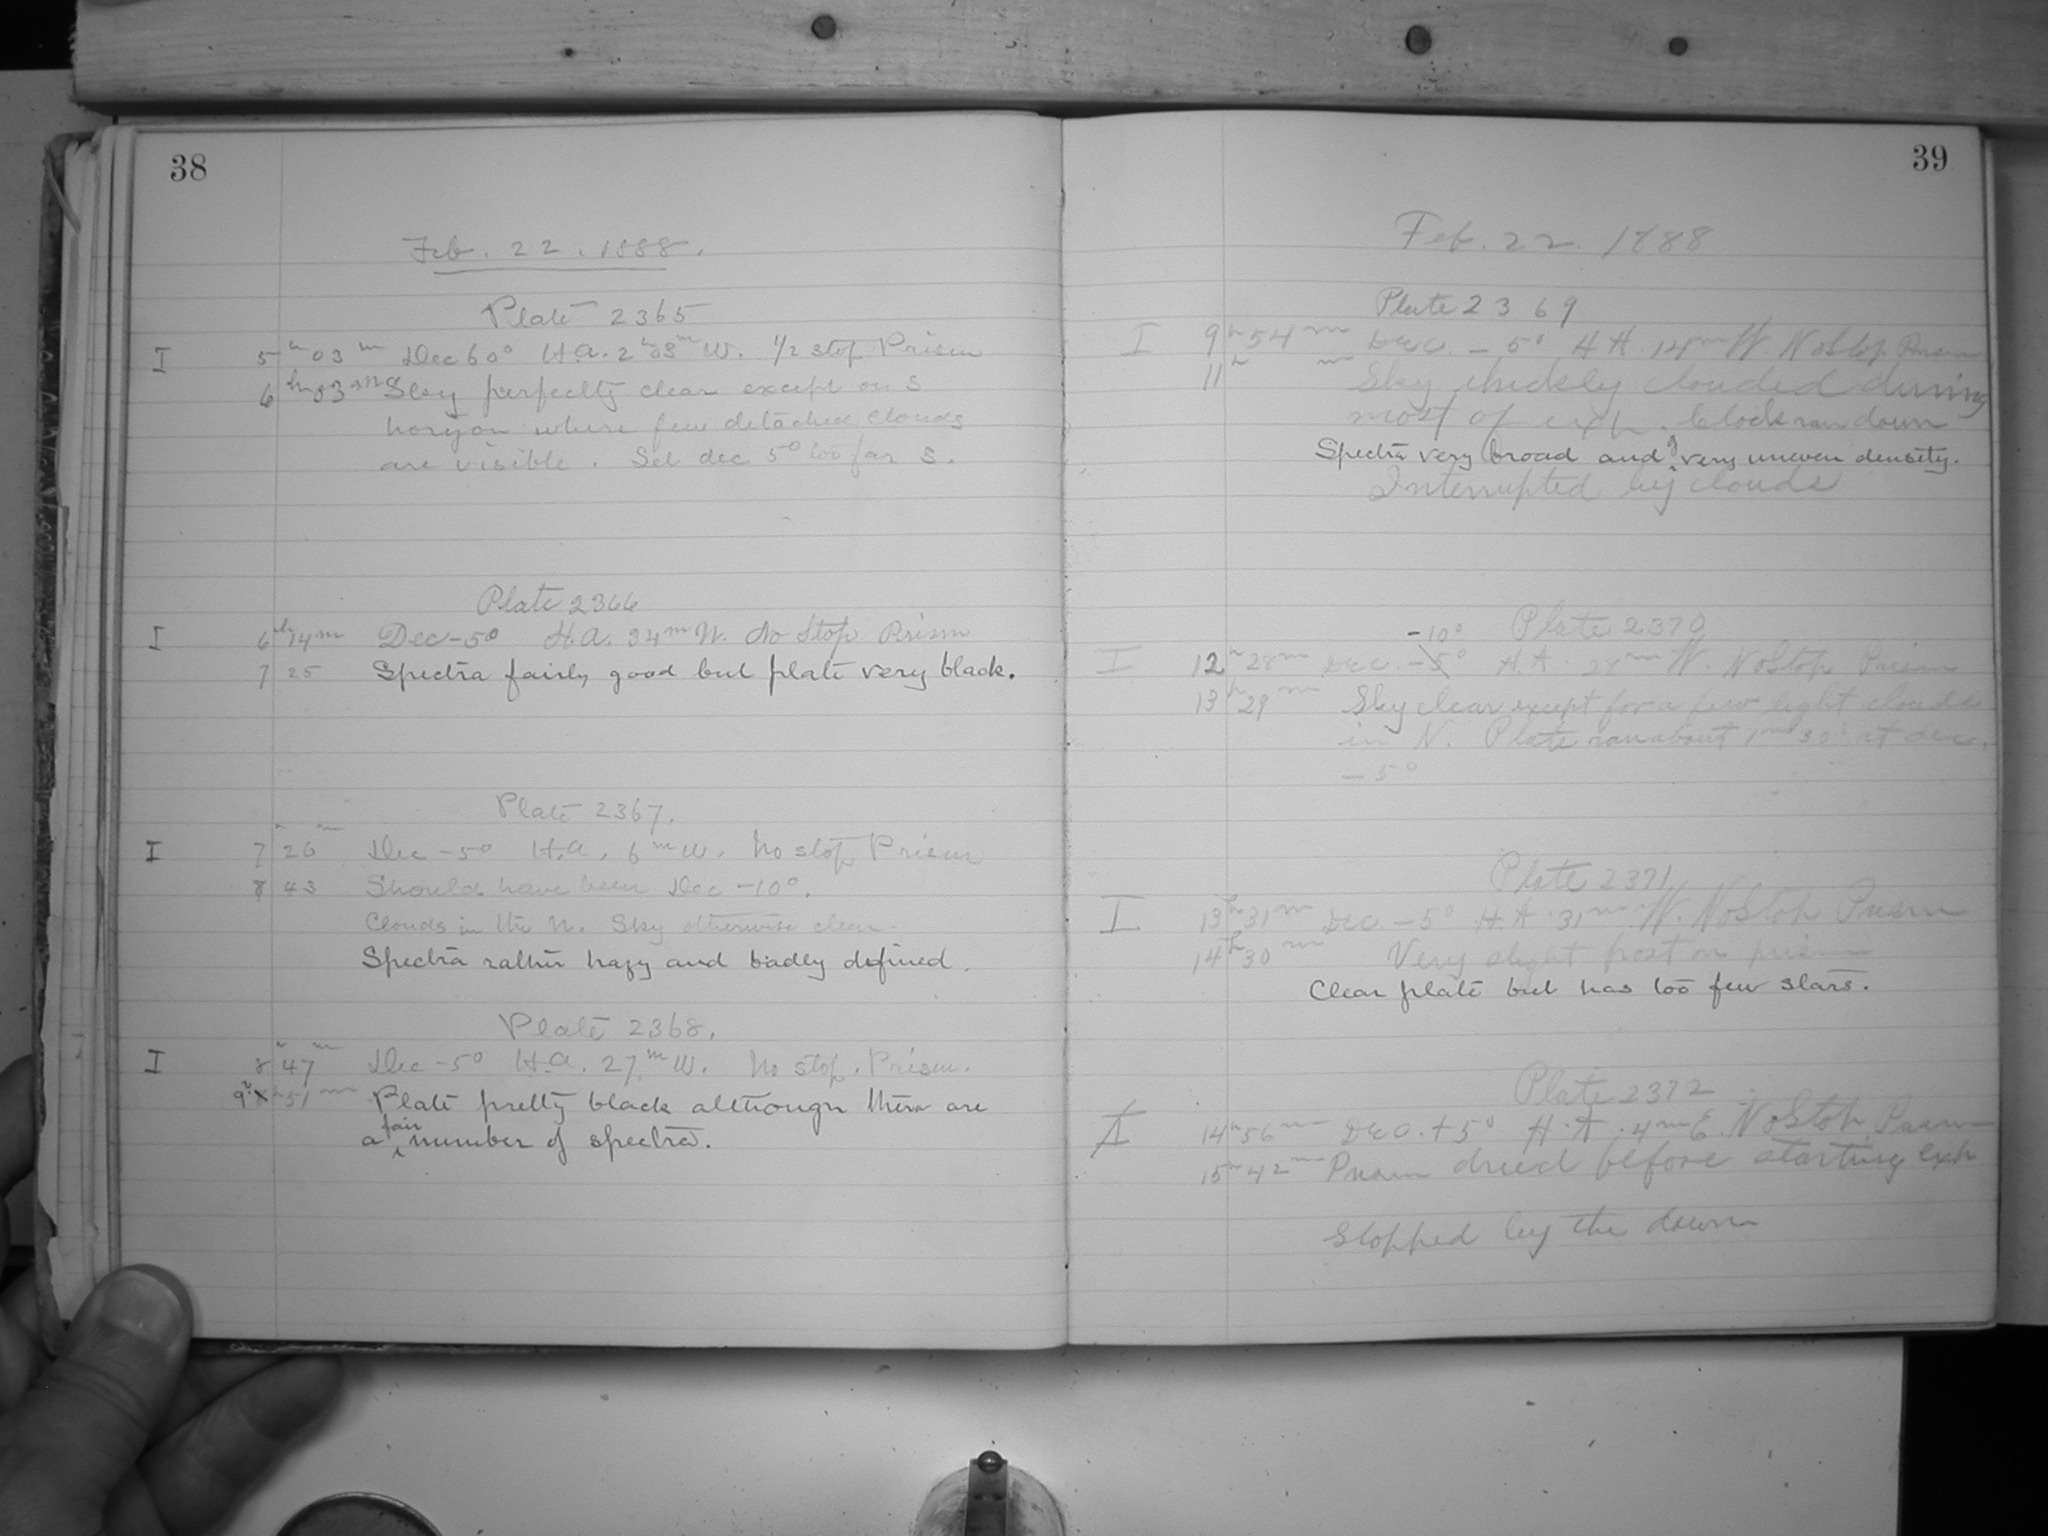 38
Feb. 22. 1888.
Plate 2365
I 5h 03m Dec 60° H.A. 2h 03m W. 1/2 stop Prism
6h 03m Sky perfectly clear except on S
horizon where few detached clouds
are visible. Set dec 5° too far S.
Plate 2366
I 6h 14m Dec -5° H.A. 34m W. No Stop Prism
7 25 Spectra fairly good but plate very black.
Plate 2367.
I 7h 26m Dec -5° H.A. 6m W. No stop Prism
8 43 Should have been Dec -10°.
Clouds in the N. Sky otherwise clear.
Spectra rather hazy and badly defined.
Plate 2368.
I 8h 47m Dec -5° H.A. 27m W. No stop. Prism.
9h 51m Plate pretty black although there are
a fair number of spectra.
39
Feb. 22. 1888
Plate 2369
I 9h 54m Dec. -5° H A. 14m W. No Stop Prism
11h m Sky thickly clouded during
most of exp. Clock ran down
Spectra very broad and of very uneven density.
Interrupted by clouds
Plate 2370
-10°
I 12h 28m Dec. -5° H.A. 28m W. No Stop Prism
13h 29m Sky clear except for a few light clouds
in N. Plate ran about 1m 30s at dec.
-5°
Plate 2371
I 13h 31m Dec. -5° H.A. 31m W. No Stop Prism
14h 30m Very slight frost on prism
Clear plate but has too few stars.
Plate 2372
I 14h 56m Dec. +5° H.A. 4m E. No Stop Prism
15h 42m Prism dried before starting exp
Stopped by the dawn